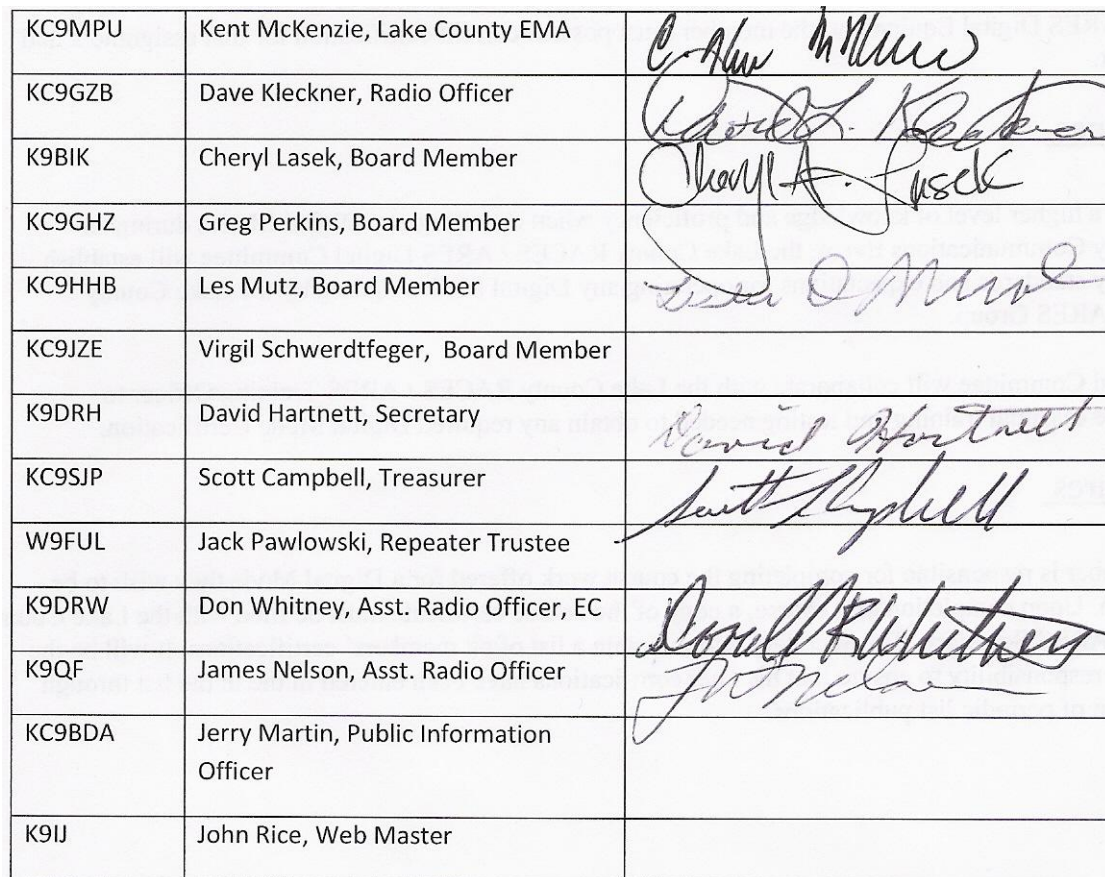 KC9MPU Kent McKenzie, Lake County EMA
KC9GZB Dave Kleckner, Radio Officer David L. Kleckner
K9BIK Cheryl Lasek, Board Member Cheryl A. Lasek
KC9GHZ Greg Pilkins, Board Member
KC9HHB Les Mutz, Board Member
KC9JZE Virgil Schwerdtfeger, Board Member
K9DRH David Hartnett, Secretary David Hartnett
KC9SJP Scott Campbell, Treasurer Scott Campbell
W9FUL Jack Pawlowski, Repeater Trustee
K9DRW Don Whitney, Asst. Radio Officer, EC Donald R Whitney
K9QF James Nelson, Asst. Radio Officer
KC9BDA Jerry Martin, Public Information
Officer
K9IJ John Rice, Web Master